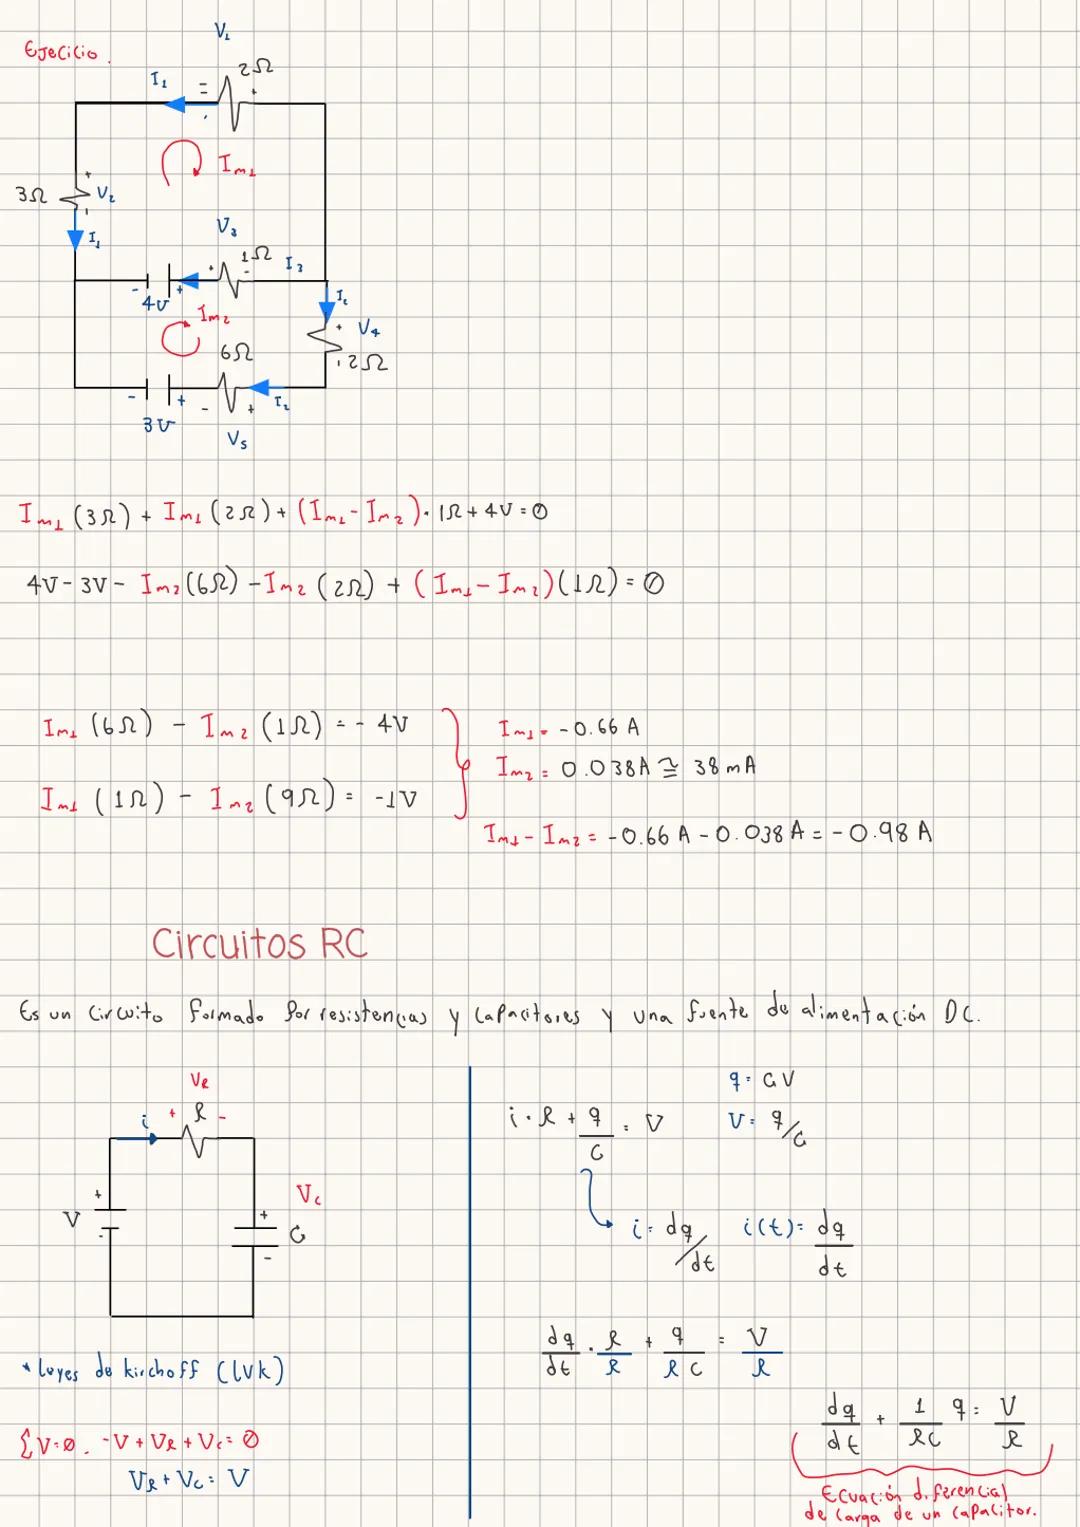 Ejecicio.
V₁
2Ω
I₁
= +
Im₁
3Ω
+
V₂
-
I₁
V₃
1Ω
I₃
+ -
- 4V +
Im₂
I₂
+ V₄
- 2Ω
6Ω
- 3V + - + I₂
V₅
Im₁ (3Ω) + Im₁ (2Ω) + (Im₁ - Im₂) · 1Ω + 4V = 0
4V - 3V - Im₂ (6Ω) - Im₂ (2Ω) + (Im₁ - Im₂)(1Ω) = 0
Im₁ (6Ω) - Im₂ (1Ω) = - 4V
Im₁ (1Ω) - Im₂ (9Ω) = -1V
Im₁ = -0.66 A
Im₂ = 0.038A ≅ 38 mA
Im₁ - Im₂ = -0.66 A - 0.038 A = -0.98 A
Circuitos RC
Es un circuito formado por resistencias y capacitores y una fuente de alimentación DC.
VR
i + R -
V + -
Vc
+ C -
* Leyes de kirchoff (LVK)
ΣV=0. -V + VR + Vc = 0
VR + Vc = V
q = CV
i · R + q/C = V
V = q/C
i = dq/dt
i(t) = dq/dt
dq/dt · R/R + q/RC = V/R
dq/dt + 1/RC q = V/R
Ecuación diferencial
de carga de un capacitor.